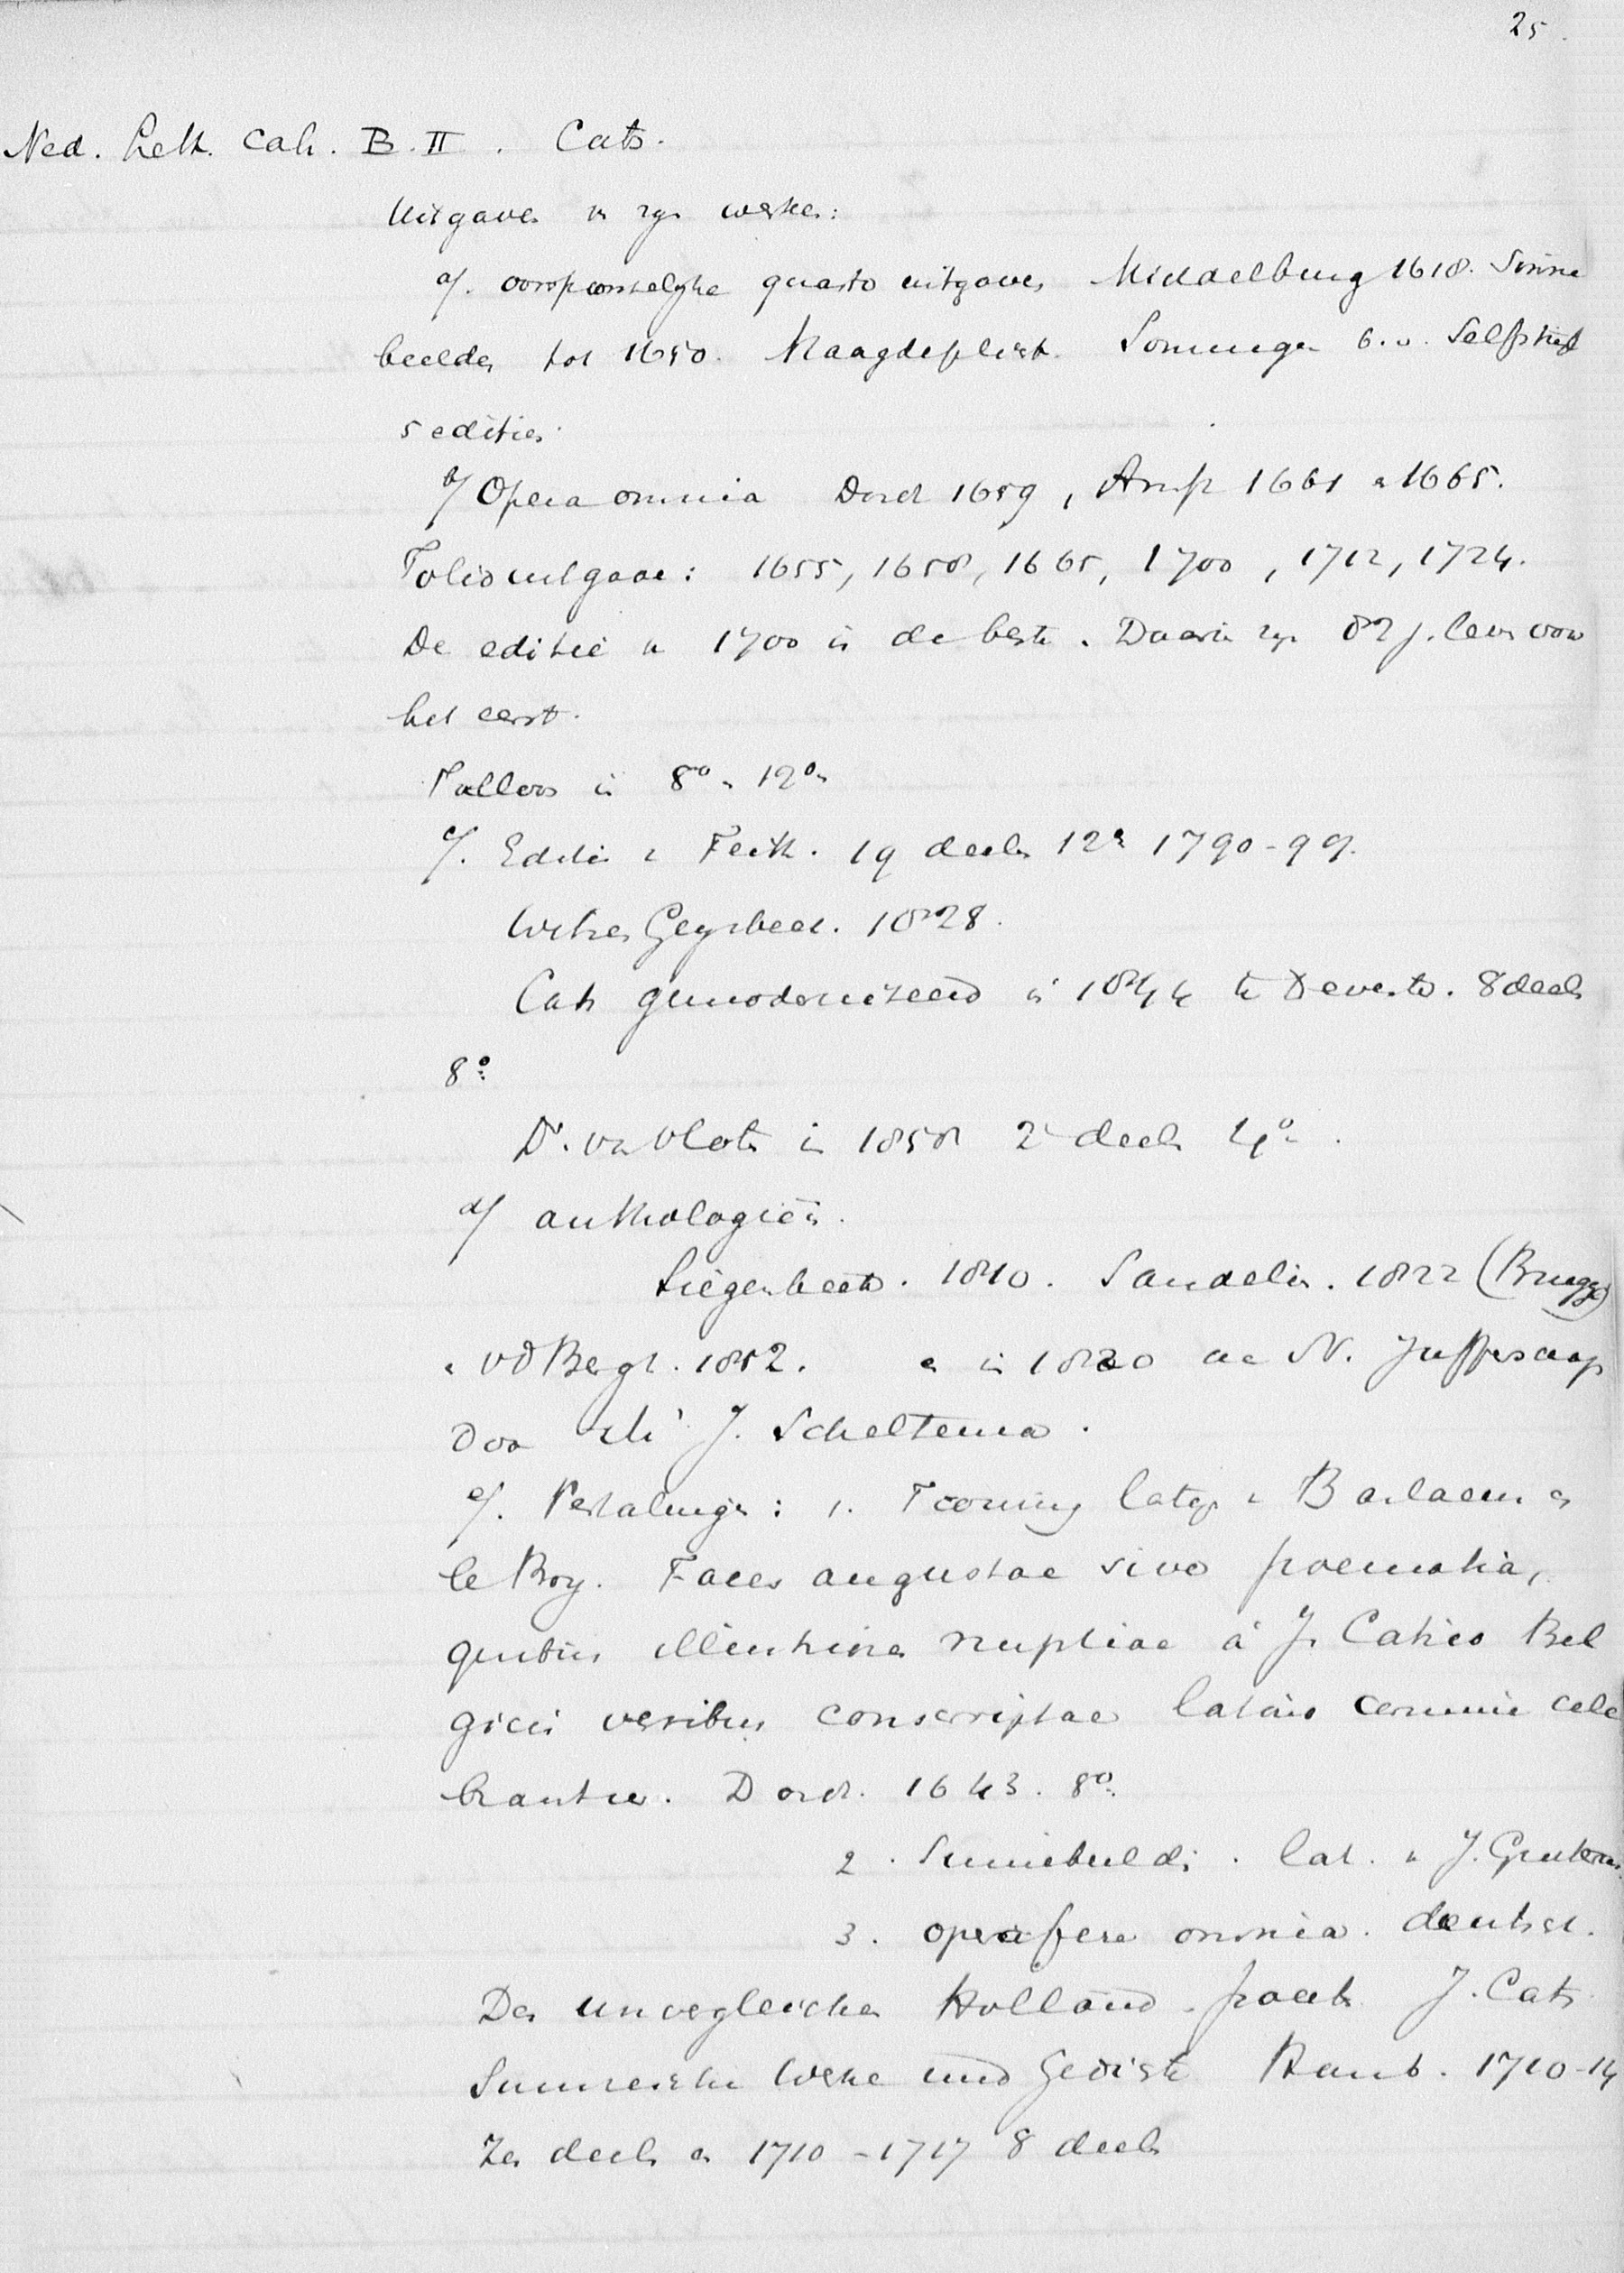 25.
Ned. Lett. Cah. B. II. Cats.
Uitgaven v zyn werken:
a/. oorspronkelyke quarto uitgaves Middelburg 1618. Sinne
beelden tot 1650. Maagdeplicht. Sommige b.v. Selfstrijt
5 edities.
b/ Opera omnia Dord 1659, Amst 1661 n 1665.
Foliouitgave: 1655, 1658, 1665, 1700, 1712, 1724.
De editie v 1700 is de beste. Daarin zyn 82 j. leven voor
het eerst.
Talloos in 8o n 12o
c/. Editie v Feith. 19 deelen 12o 1790-99.
Witsen Geysbeek. 1828.
Cats gemoderniseerd in 1844 te Deventer. 8 deelen
8o
Dr. van Vloten in 1858 2 deelen 4o.
d/ anthologiën.
Siegenbeek. 1810. Sandelin. 1822 (Brugge)
n vd Bergh. 1852. en in 1820 de N. Jufferschap
door Mr J. Scheltema.
e/. Vertalingen: 1. Trouring latyn v Barlaeus en
le Roy. Faces augustae sive poematia,
quibus illustriores nuptiae à J. Catsio Bel
gicis versibus conscriptae latino carmine cele
brantur. Dord. 1643. 8o.
2. Sinnebeelden. lat. v J. Gruterus.
3. opera fere omnia. deutsch.
Des unvergleichen Holländ. poeten J. Cats
Sinnreiche Werke und Gedichte Hamb. 1710-14
Zes deelen en 1710-1717 8 deelen